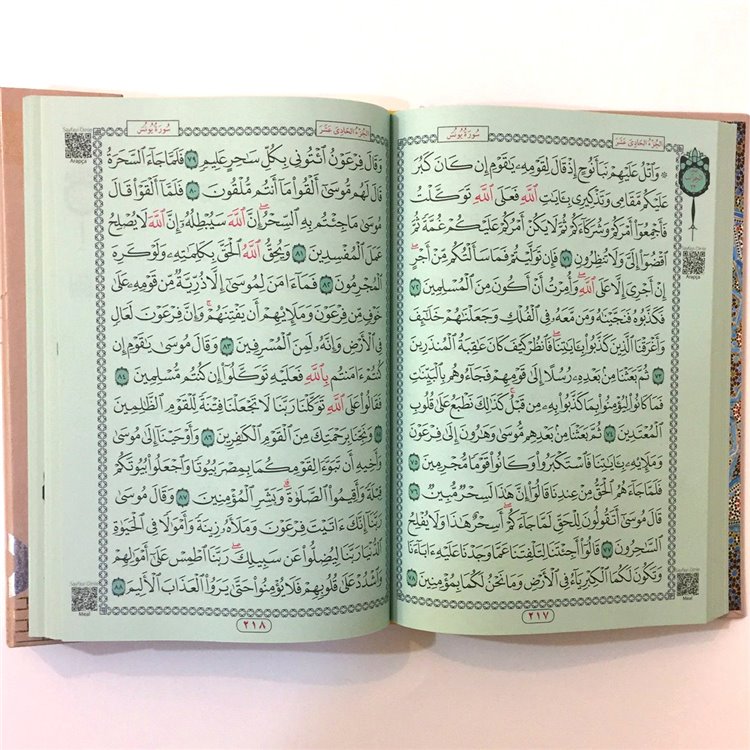 الجزء الحادي عشر
سورة يونس
وَاتْلُ عَلَيْهِمْ نَبَأَ نُوحٍ إِذْ قَالَ لِقَوْمِهِ يَاقَوْمِ إِنْ كَانَ كَبُرَ
عَلَيْكُمْ مَقَامِي وَتَذْكِيرِي بِآيَاتِ اللَّهِ فَعَلَى اللَّهِ تَوَكَّلْتُ
فَأَجْمِعُوا أَمْرَكُمْ وَشُرَكَاءَكُمْ ثُمَّ لَا يَكُنْ أَمْرُكُمْ عَلَيْكُمْ غُمَّةً ثُمَّ
اقْضُوا إِلَيَّ وَلَا تُنْظِرُونِ ٧١ فَإِنْ تَوَلَّيْتُمْ فَمَا سَأَلْتُكُمْ مِنْ أَجْرٍ
إِنْ أَجْرِيَ إِلَّا عَلَى اللَّهِ وَأُمِرْتُ أَنْ أَكُونَ مِنَ الْمُسْلِمِينَ ٧٢
فَكَذَّبُوهُ فَنَجَّيْنَاهُ وَمَنْ مَعَهُ فِي الْفُلْكِ وَجَعَلْنَاهُمْ خَلَائِفَ
وَأَغْرَقْنَا الَّذِينَ كَذَّبُوا بِآيَاتِنَا فَانْظُرْ كَيْفَ كَانَ عَاقِبَةُ الْمُنْذَرِينَ
٧٣ ثُمَّ بَعَثْنَا مِنْ بَعْدِهِ رُسُلًا إِلَى قَوْمِهِمْ فَجَاءُوهُمْ بِالْبَيِّنَاتِ
فَمَا كَانُوا لِيُؤْمِنُوا بِمَا كَذَّبُوا بِهِ مِنْ قَبْلُ كَذَلِكَ نَطْبَعُ عَلَى قُلُوبِ
الْمُعْتَدِينَ ٧٤ ثُمَّ بَعَثْنَا مِنْ بَعْدِهِمْ مُوسَى وَهَارُونَ إِلَى فِرْعَوْنَ
وَمَلَئِهِ بِآيَاتِنَا فَاسْتَكْبَرُوا وَكَانُوا قَوْمًا مُجْرِمِينَ ٧٥
فَلَمَّا جَاءَهُمُ الْحَقُّ مِنْ عِنْدِنَا قَالُوا إِنَّ هَذَا لَسِحْرٌ مُبِينٌ ٧٦
قَالَ مُوسَى أَتَقُولُونَ لِلْحَقِّ لَمَّا جَاءَكُمْ أَسِحْرٌ هَذَا وَلَا يُفْلِحُ
السَّاحِرُونَ ٧٧ قَالُوا أَجِئْتَنَا لِتَلْفِتَنَا عَمَّا وَجَدْنَا عَلَيْهِ آبَاءَنَا
وَتَكُونَ لَكُمَا الْكِبْرِيَاءُ فِي الْأَرْضِ وَمَا نَحْنُ لَكُمَا بِمُؤْمِنِينَ ٧٨
٢١٧
Sayfayı Dinle
Arapça
Sayfayı Dinle
Meal
الجزء الحادي عشر
سورة يونس
وَقَالَ فِرْعَوْنُ ائْتُونِي بِكُلِّ سَاحِرٍ عَلِيمٍ ٧٩ فَلَمَّا جَاءَ السَّحَرَةُ
قَالَ لَهُمْ مُوسَى أَلْقُوا مَا أَنْتُمْ مُلْقُونَ ٨٠ فَلَمَّا أَلْقَوْا قَالَ
مُوسَى مَا جِئْتُمْ بِهِ السِّحْرُ إِنَّ اللَّهَ سَيُبْطِلُهُ إِنَّ اللَّهَ لَا يُصْلِحُ
عَمَلَ الْمُفْسِدِينَ ٨١ وَيُحِقُّ اللَّهُ الْحَقَّ بِكَلِمَاتِهِ وَلَوْ كَرِهَ
الْمُجْرِمُونَ ٨٢ فَمَا آمَنَ لِمُوسَى إِلَّا ذُرِّيَّةٌ مِنْ قَوْمِهِ عَلَى
خَوْفٍ مِنْ فِرْعَوْنَ وَمَلَئِهِمْ أَنْ يَفْتِنَهُمْ وَإِنَّ فِرْعَوْنَ لَعَالٍ
فِي الْأَرْضِ وَإِنَّهُ لَمِنَ الْمُسْرِفِينَ ٨٣ وَقَالَ مُوسَى يَاقَوْمِ إِنْ
كُنْتُمْ آمَنْتُمْ بِاللَّهِ فَعَلَيْهِ تَوَكَّلُوا إِنْ كُنْتُمْ مُسْلِمِينَ ٨٤
فَقَالُوا عَلَى اللَّهِ تَوَكَّلْنَا رَبَّنَا لَا تَجْعَلْنَا فِتْنَةً لِلْقَوْمِ الظَّالِمِينَ
٨٥ وَنَجِّنَا بِرَحْمَتِكَ مِنَ الْقَوْمِ الْكَافِرِينَ ٨٦ وَأَوْحَيْنَا إِلَى مُوسَى
وَأَخِيهِ أَنْ تَبَوَّآ لِقَوْمِكُمَا بِمِصْرَ بُيُوتًا وَاجْعَلُوا بُيُوتَكُمْ
قِبْلَةً وَأَقِيمُوا الصَّلَاةَ وَبَشِّرِ الْمُؤْمِنِينَ ٨٧ وَقَالَ مُوسَى
رَبَّنَا إِنَّكَ آتَيْتَ فِرْعَوْنَ وَمَلَأَهُ زِينَةً وَأَمْوَالًا فِي الْحَيَاةِ
الدُّنْيَا رَبَّنَا لِيُضِلُّوا عَنْ سَبِيلِكَ رَبَّنَا اطْمِسْ عَلَى أَمْوَالِهِمْ
وَاشْدُدْ عَلَى قُلُوبِهِمْ فَلَا يُؤْمِنُوا حَتَّى يَرَوُا الْعَذَابَ الْأَلِيمَ ٨٨
٢١٨
Sayfayı Dinle
Arapça
Sayfayı Dinle
Meal